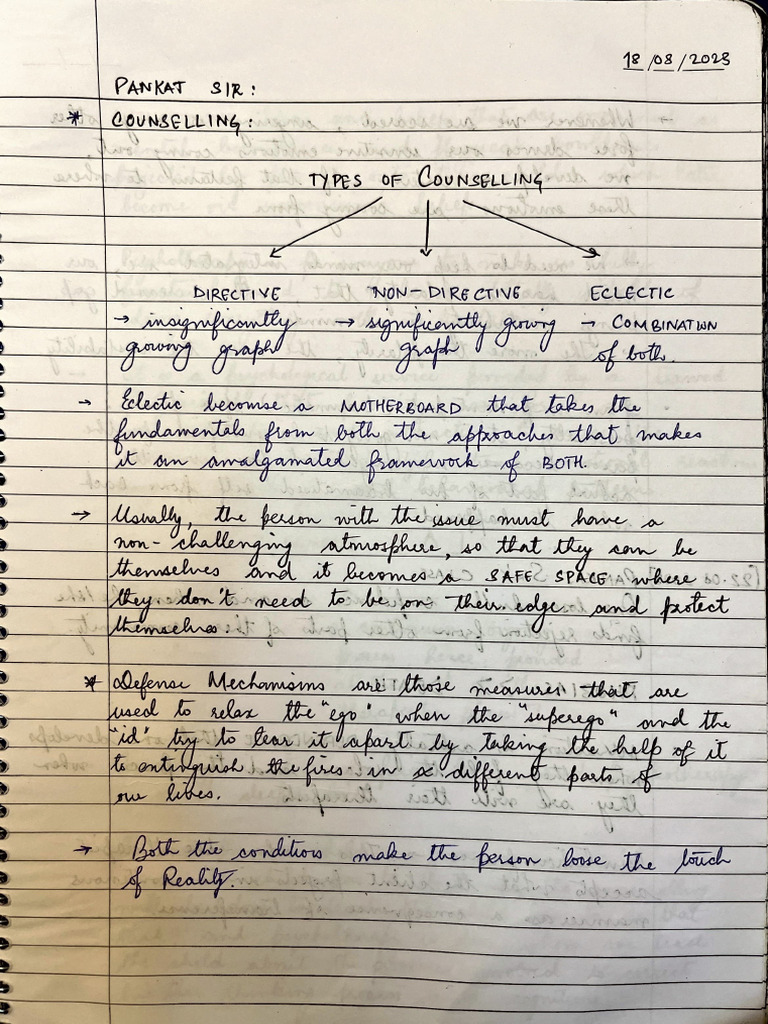 18/08/2023
PANKAT SIR:
* COUNSELLING:
TYPES OF COUNSELLING
DIRECTIVE NON-DIRECTIVE ECLECTIC
→ insignificantly → significantly growing → COMBINATION
growing graph graph of both.
→ Eclectic becomse a MOTHERBOARD that takes the
fundamentals from both the approaches that makes
it an amalgamated framework of BOTH.
→ Usually, the person with the issue must have a
non-challenging atmosphere, so that they can be
themselves and it becomes a SAFE SPACE where
they don't need to be on their edge and protect
themselves.
* Defense Mechanisms are those measures that are
used to relax the "ego" when the "superego" and the
"id" try to tear it apart by taking the help of it
to extinguish the fires in different parts of
our lives.
→ Both the conditions make the person loose the touch
of Reality.